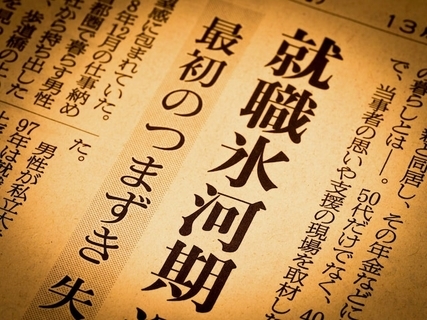 13
親と同居し、その年金などに
の暮らしとは――。50代だけでなく、40
で、当事者の思いや支援の現場を取材した
就職氷河期
最初のつまずき 失
感に包まれていた。
8年12月の仕事納め
都圏で暮らす男性
社から持ち出した
、歩道橋の
た。
男性が私立大
97年は就職